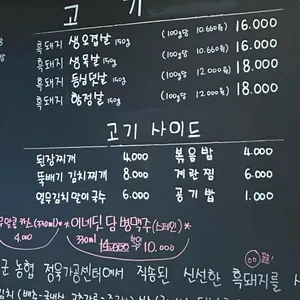 고 기
흑돼지 생오겹살 150g (100g당 10.660원) 16.000
흑돼지 생목살 150g (100g당 10.660원) 16.000
흑돼지 등심덧살 150g (100g당 12.000원) 18.000
흑돼지 항정살 150g (100g당 12.000원) 18.000
고기 사이드
된장찌개 4.000 볶음밥 4.000
뚝배기 김치찌개 8.000 계란찜 6.000
열무김치말이국수 6.000 공기밥 1.000
*이네딘담 병맥주 (스페인)
4.000 330ml 14.000 10.000
군 농협 정육가공센터에서 직송된 신선한 흑돼지를